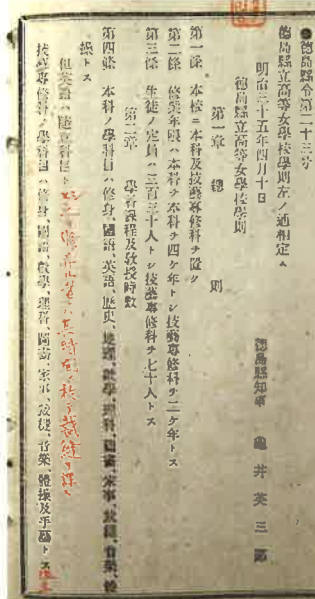 ●德島縣令第二十三号
德島縣立高等女學校學則左ノ通相定ム
明治三十五年四月十日
德島縣知事 龜井英三郎
德島縣立高等女學校學則
第一章 總則
第一條 本校ニ本科及技藝專修科ヲ置ク
第二條 修業年限ハ本科ヲ本科ヲ四ケ年トシ技藝專修科ヲ二ケ年トス
第三條 生徒ノ定員ハ三百三十人トシ技藝專修科ヲ七十人トス
第二章 學科課程及敎授時數
第四條 本科ノ學科目ハ修身、國語、英語、歷史、地理、數學、理科、圖畫、家事、裁縫、音樂、體
操トス
但英語ハ隨意科目トシ之ヲ修メザル者ハ其時間ニ於テ裁縫ヲ課ス
技藝專修科ノ學科目ハ修身、國語、數學、理科、圖畫、家事、裁縫、音樂、體操及手藝トス